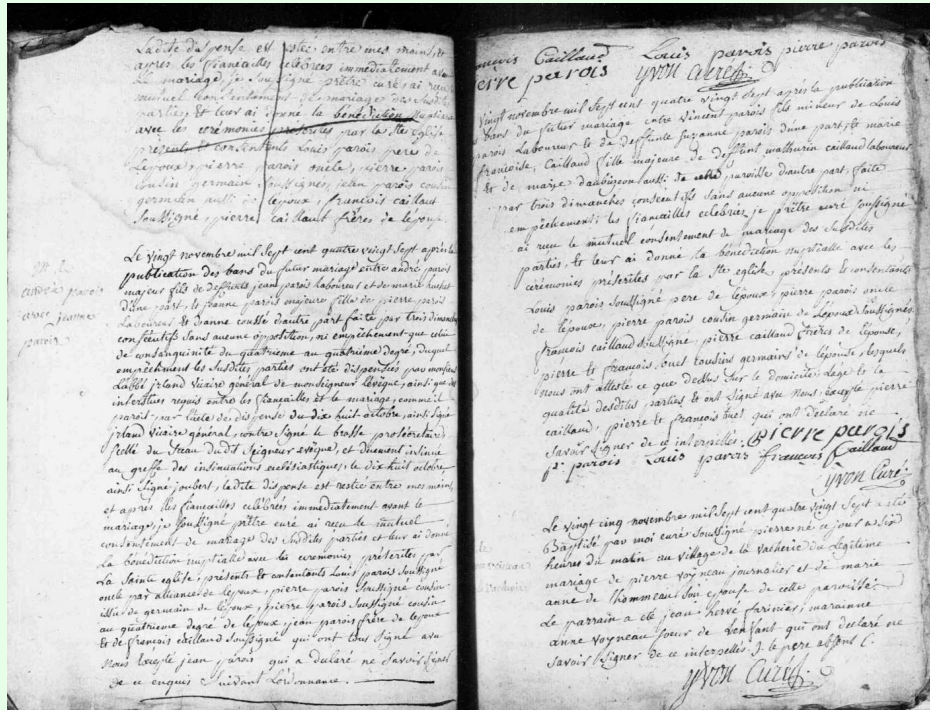 Ladite dispense est restée entre mes mains, et
après les fiancailles célébrées immédiatement avant
le mariage, je soussigné prêtre curé, ai reçu
mutuel consentement de mariage des susdites
parties, et leur ai donné la bénédiction nuptiale
avec les cérémonies préscrites par la Ste Eglise
présents et consentants Louis parois peres de
Lepoux, pierre parois oncle, pierre parois
cousin germain soussignés, jean parois cousin
germain aussi de lepoux, francois caillaut
soussigné, pierre caillaut frères de lepouse
m. de
andré parois
avec jeanne
parois
Le vingt novembre mil sept cent quatre vingt sept après la
publication des bans du futur mariage entre andré parois
majeur fils de deffunts jean parois laboureur et de marie huchet
d'une part, et jeanne parois majeure fille de pierre parois
Laboureur et d'anne cousse d'autre part faite par trois dimanches
consécutifs sans aucune opposition, ni empêchement que celui
de consanguinité du quatrième au quatrième degré, duquel
empêchement les susdites parties ont été dispensés par monsieur
Labbé jrland vicaire général de monseigneur Levêque, ainsi que des
interstices requis entre les fiancailles et le mariage, comme il
paroit par lacte de dispense du dix huit octobre, ainsi signé
jrland vicaire général, contre signé le brasse prosécretaire,
scellé du sceau dudit seigneur evêque, et duement insinué
au greffe des insinuations ecclésiastiques, le dix huit octobre
ainsi signé joubert, ladite dispense est restée entre mes mains,
et après les fiancailles célébrées immédiatement avant le
mariage, je soussigné prêtre curé ai reçu le mutuel
consentement de mariage des susdites parties et leur ai donné
La bénédiction nuptialle avec les cérémonies préscrites par
La Sainte eglise, présents et contentants Louis parois soussigné
oncle par alliance de lépoux, pierre parois soussigné cousin
issu de germain de lépoux, pierre parois soussigné cousin
au quatrième degré de lépoux, jean parois frère de lepoux
et de françois caillaud soussigné qui ont tous signé avec
Nous Excepté jean parois qui a declaré ne savoir signer
de ce enquis suivant L'ordonnance.
françois Caillaud Louis parois pierre parois
pierre parois yvon curé
vingt novembre mil sept cent quatre vingt sept après la publication
des bans du futur mariage entre vincent parois fils mineur de Louis
parois Laboureur et de deffunte Suzanne parois d'une part, et marie
françoise Caillaud fille majeure de deffunt mathurin caillaud laboureur
et de marie daubigeon aussi de cette paroisse d'autre part, faite
par trois dimanches consécutifs sans aucune opposition ni
empêchement; les fiancailles celebrées, je prêtre curé soussigné
ai reçu le mutuel consentement de mariage des susdites
parties, et leur ai donné la bénédiction nuptialle avec les
cérémonies préscrites par la Ste eglise, présents et consentants
Louis parois soussigné pere de lépoux, pierre parois oncle
de lépoux, pierre parois cousin germain de Lepoux soussignés
françois caillaud soussigné, pierre caillaud frères de lépouse,
pierre et françois huet cousins germains de lépouse, lesquels
nous ont attesté ce que dessus sur le domicile, lage et la
qualité desdites parties et ont signé avec nous, excepté pierre
caillaud, pierre et françois huet qui ont déclaré ne
savoir signer de ce interpellés. pierre parois
pr. parois Louis parois françois Caillaud
yvon Curé
Le vingt cinq novembre mil sept cent quatre vingt sept a été
Baptisé par moi curé soussigné pierre né ce jour a six
heures du matin au village de la vacherie du legitime
mariage de pierre voyneau journalier et de marie
anne de l'hommeau son epouse de cette paroisse.
Le parrain a été jean hervé farinier, marainne
anne voyneau soeur de Lenfant qui ont declaré ne
savoir signer de ce interpellés ./. le pere absent
yvon Curé